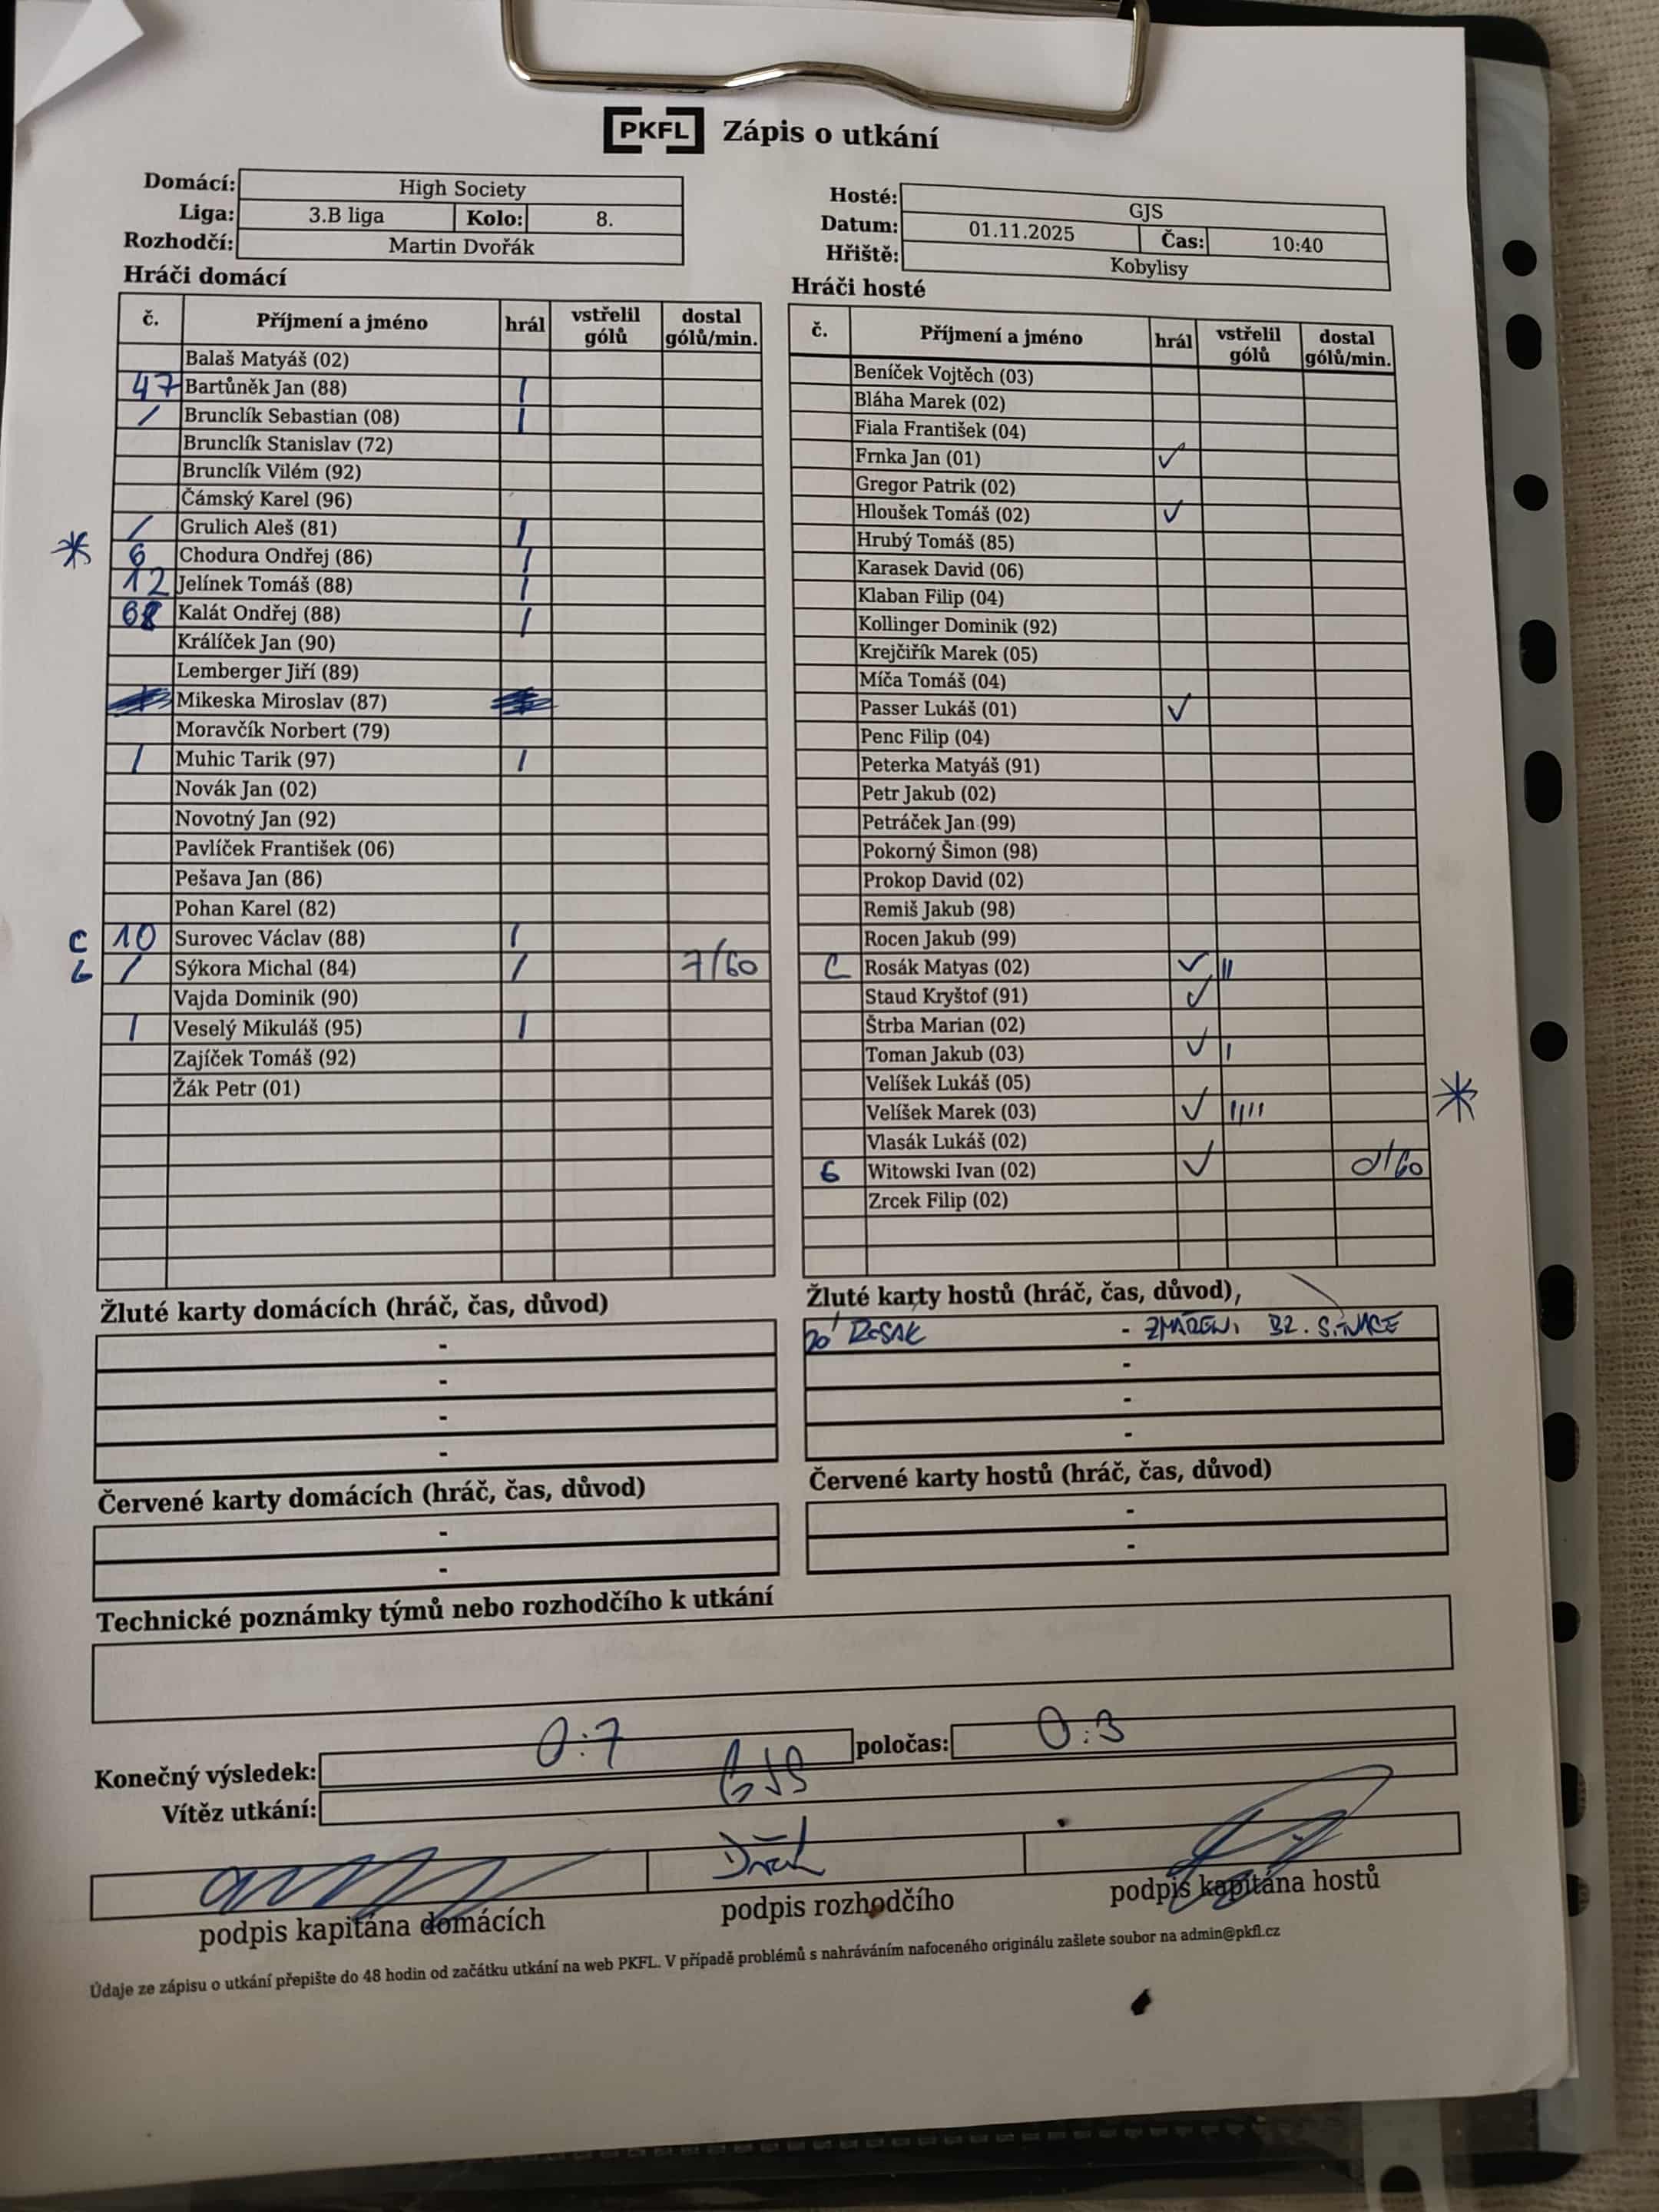 PKFL Zápis o utkání
Domácí: High Society
Liga: 3.B liga Kolo: 8.
Rozhodčí: Martin Dvořák
Hosté: GJS
Datum: 01.11.2025 Čas: 10:40
Hřiště: Kobylisy
Hráči domácí
č. Příjmení a jméno hrál vstřelil gólů dostal gólů/min.
Balaš Matyáš (02)
47 Bartůněk Jan (88) |
/ Brunclík Sebastian (08) |
Brunclík Stanislav (72)
Brunclík Vilém (92)
Čámský Karel (96)
/ Grulich Aleš (81) |
* 6 Chodura Ondřej (86) |
12 Jelínek Tomáš (88) |
68 Kalát Ondřej (88) |
Králíček Jan (90)
Lemberger Jiří (89)
Mikeska Miroslav (87)
Moravčík Norbert (79)
/ Muhic Tarik (97) |
Novák Jan (02)
Novotný Jan (92)
Pavlíček František (06)
Pešava Jan (86)
Pohan Karel (82)
C 10 Surovec Václav (88) |
G / Sýkora Michal (84) / 7/60
Vajda Dominik (90)
/ Veselý Mikuláš (95) |
Zajíček Tomáš (92)
Žák Petr (01)
Hráči hosté
č. Příjmení a jméno hrál vstřelil gólů dostal gólů/min.
Beníček Vojtěch (03)
Bláha Marek (02)
Fiala František (04)
Frnka Jan (01) ✓
Gregor Patrik (02)
Hloušek Tomáš (02) ✓
Hrubý Tomáš (85)
Karasek David (06)
Klaban Filip (04)
Kollinger Dominik (92)
Krejčiřík Marek (05)
Míča Tomáš (04)
Passer Lukáš (01) ✓
Penc Filip (04)
Peterka Matyáš (91)
Petr Jakub (02)
Petráček Jan (99)
Pokorný Šimon (98)
Prokop David (02)
Remiš Jakub (98)
Rocen Jakub (99)
C Rosák Matyas (02) ✓ ||
Staud Kryštof (91) ✓
Štrba Marian (02)
Toman Jakub (03) ✓ |
Velíšek Lukáš (05)
Velíšek Marek (03) ✓ |||| *
Vlasák Lukáš (02)
G Witowski Ivan (02) ✓ 0/60
Zrcek Filip (02)
Žluté karty domácích (hráč, čas, důvod)
-
-
-
-
Žluté karty hostů (hráč, čas, důvod)
20' ROSAK - ZMAŘENI BZ. SITUACE
-
-
-
Červené karty domácích (hráč, čas, důvod)
-
-
Červené karty hostů (hráč, čas, důvod)
-
-
Technické poznámky týmů nebo rozhodčího k utkání
Konečný výsledek: 0:7 poločas: 0:3
Vítěz utkání: GJS
podpis kapitána domácích podpis rozhodčího podpis kapitána hostů
Údaje ze zápisu o utkání přepište do 48 hodin od začátku utkání na web PKFL. V případě problémů s nahráváním nafoceného originálu zašlete soubor na admin@pkfl.cz